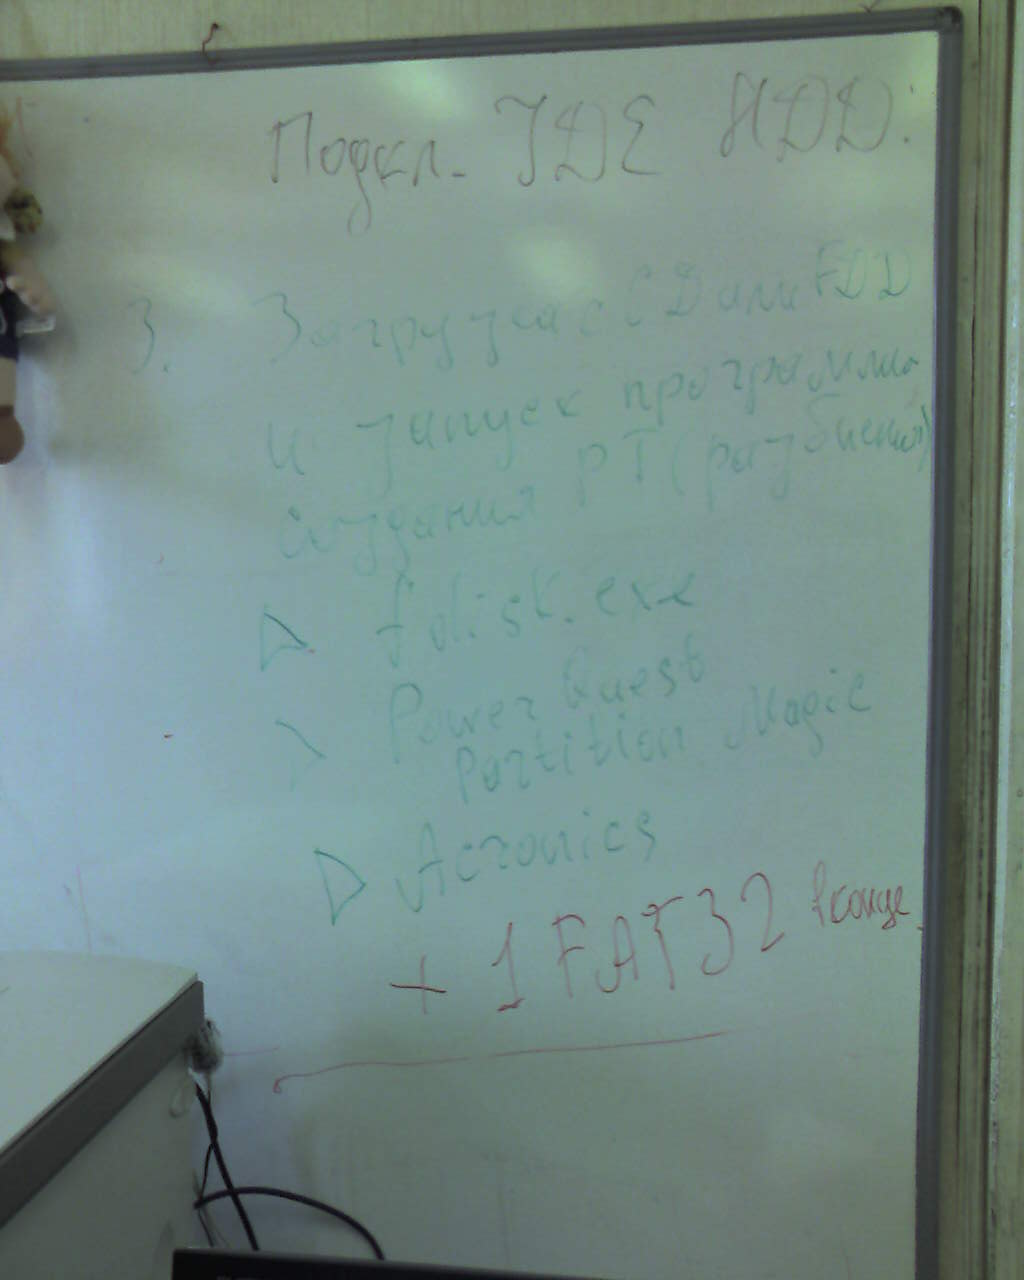 Подкл. IDE HDD:
3. Загрузка с CD или FDD
и запуск программы
создания PT (разбиения)
fdisk.exe
Power Quest
Partition Magic
Acronics
+ 1 FAT32 в конце